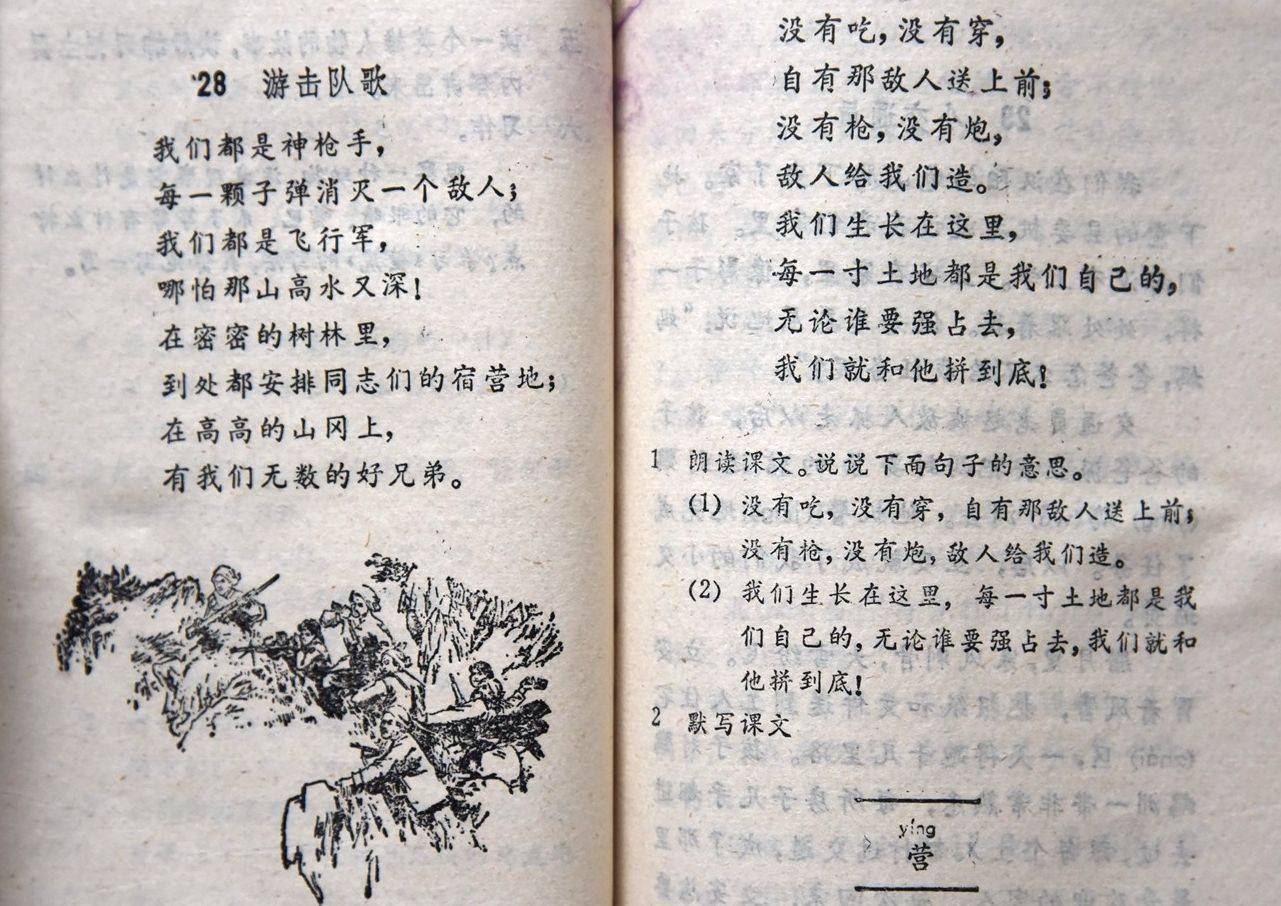 28 游击队歌
我们都是神枪手，
每一颗子弹消灭一个敌人；
我们都是飞行军，
哪怕那山高水又深！
在密密的树林里，
到处都安排同志们的宿营地；
在高高的山冈上，
有我们无数的好兄弟。
没有吃，没有穿，
自有那敌人送上前；
没有枪，没有炮，
敌人给我们造。
我们生长在这里，
每一寸土地都是我们自己的，
无论谁要强占去，
我们就和他拼到底！
1 朗读课文。说说下面句子的意思。
(1) 没有吃，没有穿，自有那敌人送上前；
没有枪，没有炮，敌人给我们造。
(2) 我们生长在这里，每一寸土地都是我
们自己的，无论谁要强占去，我们就和
他拼到底！
2 默写课文
yíng
营